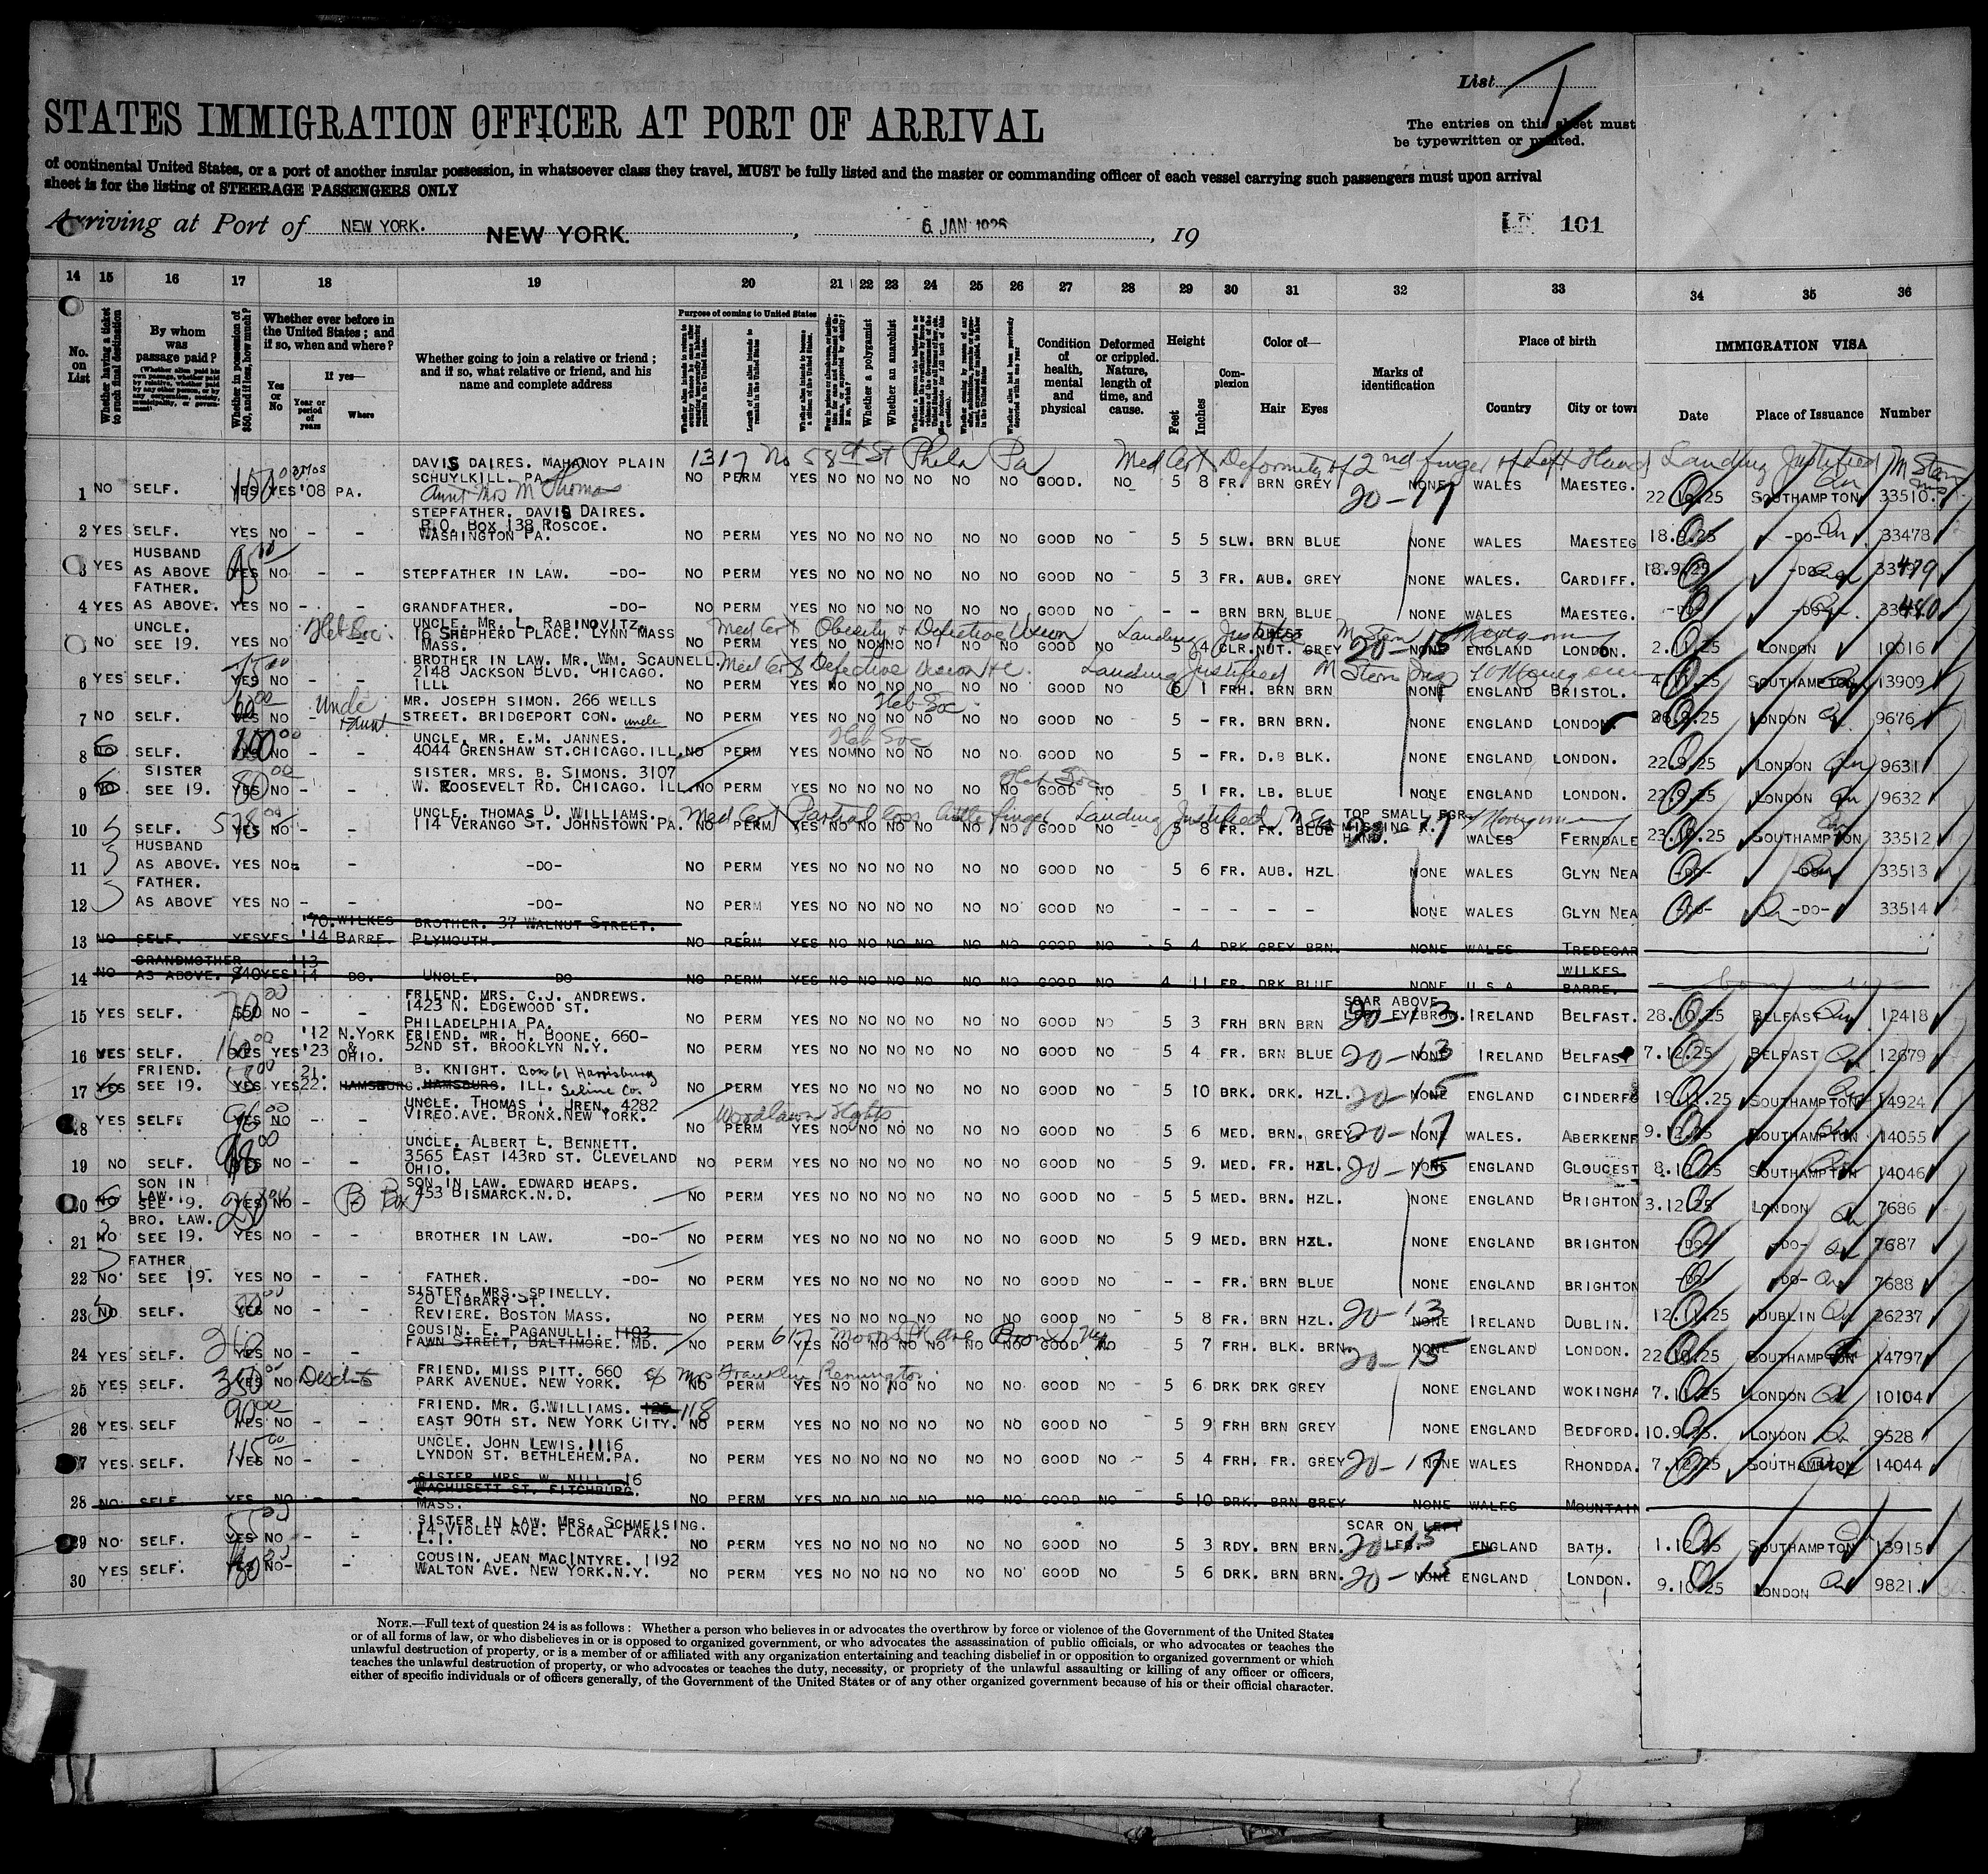 List
STATES IMMIGRATION OFFICER AT PORT OF ARRIVAL
The entries on this sheet must
be typewritten or printed.
of continental United States, or a port of another insular possession, in whatsoever class they travel, MUST be fully listed and the master or commanding officer of each vessel carrying such passengers must upon arrival
sheet is for the listing of STEERAGE PASSENGERS ONLY
Arriving at Port of NEW YORK. NEW YORK. , 6 JAN 1926 , 19 101
14 15 16 17 18 19 20 21 22 23 24 25 26 27 28 29 30 31 32 33 34 35 36
No. on List
Whether having a ticket to such final destination
By whom was passage paid?
Whether in possession of $50, and if less, how much?
Whether ever before in the United States; and if so, when and where?
Yes or No
If yes—
Year or period of years
Where
Whether going to join a relative or friend; and if so, what relative or friend, and his name and complete address
Purpose of coming to United States
Length of time alien intends to remain in the United States
Whether a polygamist
Whether an anarchist
Condition of health, mental and physical
Deformed or crippled. Nature, length of time, and cause.
Height
Feet
Inches
Complexion
Color of—
Hair
Eyes
Marks of identification
Place of birth
Country
City or town
IMMIGRATION VISA
Date
Place of Issuance
Number
DAVIS DAIRES. MAHANOY PLAIN 1317 No 58th St Phila Pa Med Cert Deformity of 2nd finger of Left Hand Landing Justified M Stern
SCHUYLKILL. PA.
1 NO SELF. YES YES '08 PA. Aunt Mrs M Thomas NO PERM YES NO NO NO NO NO NO GOOD. NO 5 8 FR. BRN GREY NONE 20-17 WALES MAESTEG. 22.10.25 SOUTHAMPTON 33510
STEPFATHER. DAVIS DAIRES.
P.O. BOX 138 ROSCOE.
2 YES SELF. YES NO - - WASHINGTON PA. NO PERM YES NO NO NO NO NO NO GOOD NO 5 5 SLW. BRN BLUE NONE WALES MAESTEG 18.9.25 -DO- 33478
HUSBAND
3 YES AS ABOVE YES NO - - STEPFATHER IN LAW. -DO- NO PERM YES NO NO NO NO NO NO GOOD NO 5 3 FR. AUB. GREY NONE WALES. CARDIFF. 18.9.25 -DO- 33479
FATHER.
4 YES AS ABOVE. YES NO - - GRANDFATHER. -DO- NO PERM YES NO NO NO NO NO NO GOOD NO - - BRN BRN BLUE NONE WALES MAESTEG. -DO- -DO- 480
UNCLE. UNCLE. MR. L. RABINOVITZ. Med Cert Obesity & Defective Vision Landing Justified M Stern
16 SHEPHERD PLACE. LYNN MASS
NO SEE 19. YES NO Heb Soc MASS. NO PERM YES NO NO NO NO NO NO GOOD NO 5 4 CLR. NUT. GREY NONE 20-15 ENGLAND LONDON. 2.11.25 LONDON 10016
BROTHER IN LAW. MR. WM. SCAUNELL. Med Cert Defective Vision Landing Justified M Stern
2148 JACKSON BLVD. CHICAGO.
6 YES SELF. YES NO - - ILL. NO PERM YES NO NO NO NO NO NO GOOD NO 6 1 FRH. BRN BRN NONE ENGLAND BRISTOL. 4.11.25 SOUTHAMPTON 13909
MR. JOSEPH SIMON. 266 WELLS Heb Soc
7 NO SELF. YES NO Uncle STREET. BRIDGEPORT CON. uncle NO PERM YES NO NO NO NO NO NO GOOD NO 5 - FR. BRN BRN. NONE ENGLAND LONDON. 26.9.25 LONDON 9676
UNCLE. MR. E.M. JANNES. Heb Soc
8 NO SELF. 100 NO - - 4044 GRENSHAW ST. CHICAGO. ILL. NO PERM YES NO NO NO NO NO NO. GOOD NO 5 - FR. D.B BLK. NONE ENGLAND LONDON. 22.9.25 LONDON 9631
SISTER SISTER. MRS. B. SIMONS. 3107 Heb Soc
9 NO SEE 19. 80 YES NO - - W. ROOSEVELT RD. CHICAGO. ILL. NO PERM YES NO NO NO NO NO NO GOOD NO 5 1 FR. LB. BLUE NONE ENGLAND LONDON. 22.9.25 LONDON 9632
UNCLE. THOMAS D. WILLIAMS. Med Cert Partial loss little finger Landing Justified TOP SMALL FGR.
10 SELF. YES NO - - 114 VERANGO ST. JOHNSTOWN PA. NO PERM YES NO NO NO NO NO NO GOOD NO 5 8 FR. FR. BLUE MISSING R. HAND. WALES FERNDALE 23.10.25 SOUTHAMPTON 33512
HUSBAND
11 AS ABOVE. YES NO - - -DO- NO PERM YES NO NO NO NO NO NO GOOD NO 5 6 FR. AUB. HZL. NONE WALES GLYN NEA -DO- -DO- 33513
FATHER.
12 AS ABOVE YES NO - - -DO- NO PERM YES NO NO NO NO NO NO GOOD NO - - - - - NONE WALES GLYN NEA -DO- -DO- 33514
'70. WILKES BROTHER. 37 WALNUT STREET.
13 NO SELF. YES YES '14 BARRE. PLYMOUTH. NO PERM YES NO NO NO NO NO NO GOOD NO 5 4 DRK GREY BRN. NONE WALES TREDEGAR
GRANDMOTHER '13 WILKES
14 NO AS ABOVE. $40 YES '14 DO. UNCLE. DO NO PERM YES NO NO NO NO NO NO GOOD NO 4 11 FR. DRK BLUE NONE U S A BARRE.
FRIEND. MRS. C.J. ANDREWS. SCAR ABOVE
1423 N. EDGEWOOD ST.
15 YES SELF. $50 NO - - PHILADELPHIA PA. NO PERM YES NO NO NO NO NO NO GOOD NO 5 3 FRH BRN BRN LEFT EYEBROW. 20-13 IRELAND BELFAST. 28.10.25 BELFAST 12418
'12 N.YORK FRIEND. MR. H. BOONE. 660-
16 YES SELF. 160 YES YES '23 & OHIO. 52ND ST. BROOKLYN N.Y. NO PERM YES NO NO NO NO NO NO GOOD NO 5 4 FR. BRN BLUE NONE 20-13 IRELAND BELFAST 7.12.25 BELFAST 12679
FRIEND. 21. B. KNIGHT. Box 61 Harrisburg
17 YES SEE 19. YES YES 22. HAMSBURG. HAMSBURG. ILL. Saline Co. NO PERM YES NO NO NO NO NO NO GOOD NO 5 10 BRK. DRK. HZL. NONE 20-15 ENGLAND CINDERFO 19.11.25 SOUTHAMPTON 14924
UNCLE. THOMAS I. UREN. 4282 Woodlawn Hghts
18 YES SELF. YES NO - - VIREO. AVE. BRONX. NEW YORK. NO PERM YES NO NO NO NO NO NO GOOD NO 5 6 MED. BRN. GREY NONE 20-17 WALES. ABERKENF 9.12.25 SOUTHAMPTON 14055
UNCLE. ALBERT L. BENNETT.
19 NO SELF. YES NO - - 3565 EAST 143RD ST. CLEVELAND OHIO. NO PERM YES NO NO NO NO NO NO GOOD NO 5 9. MED. FR. HZL. NONE 20-15 ENGLAND GLOUCEST 8.12.25 SOUTHAMPTON 14046
SON IN LAW. SON IN LAW. EDWARD HEAPS.
20 NO SEE 19. YES NO P.O Box 453 BISMARCK. N.D. NO PERM YES NO NO NO NO NO NO GOOD NO 5 5 MED. BRN. HZL. NONE ENGLAND BRIGHTON 3.12.25 LONDON 7686
BRO. LAW.
21 NO SEE 19. YES NO - - BROTHER IN LAW. -DO- NO PERM YES NO NO NO NO NO NO GOOD NO 5 9 MED. BRN HZL. NONE ENGLAND BRIGHTON -DO- -DO- 7687
FATHER
22 NO SEE 19. YES NO - - FATHER. -DO- NO PERM YES NO NO NO NO NO NO GOOD NO - - FR. BRN BLUE NONE ENGLAND BRIGHTON -DO- -DO- 7688
SISTER. MRS. SPINELLY.
20 LIBRARY ST.
23 NO SELF. YES NO - - REVIERE. BOSTON MASS. NO PERM YES NO NO NO NO NO NO GOOD NO 5 8 FR. BRN HZL. NONE 20-13 IRELAND DUBLIN. 12.11.25 DUBLIN 26237
COUSIN. E. PAGANULLI. 1103 617 Morris Park Ave Bronx NY
24 YES SELF. YES NO - - FAWN STREET, BALTIMORE. MD. NO PERM YES NO NO NO NO NO NO GOOD NO 5 7 FRH. BLK. BRN. NONE 20-15 ENGLAND LONDON. 22.10.25 SOUTHAMPTON 14797
FRIEND. MISS PITT. 660 c/o Mrs Franklin Remington
25 YES SELF. 350 YES NO PARK AVENUE. NEW YORK. NO PERM YES NO NO NO NO NO NO GOOD NO 5 6 DRK DRK GREY NONE ENGLAND WOKINGHA 7.11.25 LONDON 10104
FRIEND. MR. G. WILLIAMS. 125 118
26 YES SELF 90 YES NO - - EAST 90TH ST. NEW YORK CITY. NO PERM YES NO NO NO NO NO NO GOOD NO 5 9 FRH BRN GREY NONE ENGLAND BEDFORD. 10.9.25. LONDON 9528
UNCLE. JOHN LEWIS. 1116
27 YES SELF. 115 YES NO - - LYNDON ST. BETHLEHEM. PA. NO PERM YES NO NO NO NO NO NO GOOD NO 5 4 FRH. FR. GREY 20-17 NONE WALES RHONDDA. 7.12.25 SOUTHAMPTON 14044
SISTER. MRS. W. NILL. 16
WACHUSETT ST. FITCHBURG.
28 NO SELF YES NO - - MASS. NO PERM YES NO NO NO NO NO NO GOOD NO 5 10 DRK. BRN GREY NONE WALES MOUNTAIN
SISTER IN LAW. MRS. SCHMELSING. SCAR ON LEFT
14 VIOLET AVE. FLORAL PARK.
29 NO SELF. YES NO - - L.I. NO PERM YES NO NO NO NO NO NO GOOD NO 5 3 RDY. BRN BRN. LEG. 20-15 ENGLAND BATH. 1.12.25 SOUTHAMPTON 13915
COUSIN. JEAN MACINTYRE. 1192
30 YES SELF. YES NO - - WALTON AVE. NEW YORK. N.Y. NO PERM YES NO NO NO NO NO NO GOOD NO 5 6 DRK. BRN BRN. 20-15 NONE ENGLAND LONDON. 9.10.25 LONDON 9821.
NOTE.—Full text of question 24 is as follows: Whether a person who believes in or advocates the overthrow by force or violence of the Government of the United States
or of all forms of law, or who disbelieves in or is opposed to organized government, or who advocates the assassination of public officials, or who advocates or teaches the
unlawful destruction of property, or is a member of or affiliated with any organization entertaining and teaching disbelief in or opposition to organized government or which
teaches the unlawful destruction of property, or who advocates or teaches the duty, necessity, or propriety of the unlawful assaulting or killing of any officer or officers,
either of specific individuals or of officers generally, of the Government of the United States or of any other organized government because of his or their official character.